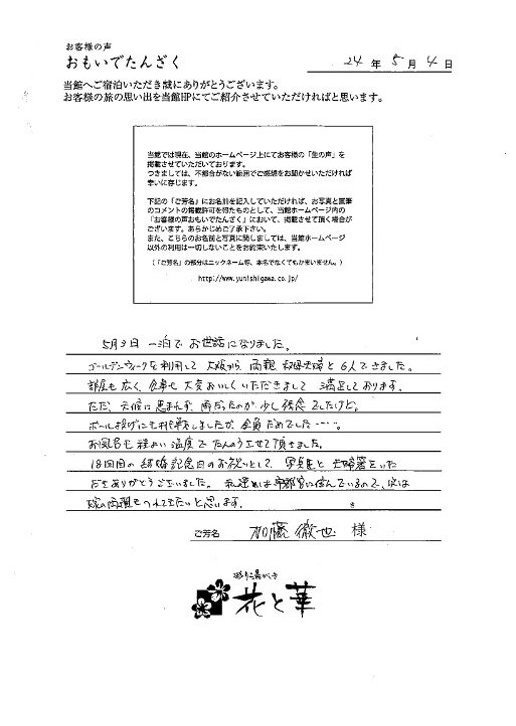 お客様の声
おもいでたんざく
24年 5月 4日
当館へご宿泊いただき誠にありがとうございます。
お客様の旅の思い出を当館HPにてご紹介させていただければと思います。
当館では現在、当館のホームページ上にてお客様の「生の声」を
掲載させていただいております。
つきましては、不都合がない範囲でご感想をお聞かせいただければ
幸いに存じます。
下記の「ご芳名」にお名前を記入していただければ、お写真と直筆
のコメントの掲載許可を得たものとして、当館ホームページ内の
「お客様の声おもいでたんざく」において、掲載させて頂く場合が
ございます。あらかじめご了承下さい。
また、こちらのお名前と写真に関しましては、当館ホームページ
以外の利用は一切しないことをお約束いたします。
(「ご芳名」の部分はニックネーム等、本名でなくてもかまいません。)
http://www.yunishigawa.co.jp/
5月3日 一泊でお世話になりました。
ゴールデンウィークを利用して 大阪から 両親 夫婦と6人できました。
部屋も広く、食事も大変おいしくいただきまして 満足しております。
ただ、天候に恵まれず、雨だったのが少し残念でしたけど。
ボール投げにも挑戦しましたが、全員だめでした・・・・。
お風呂も程よい温度でたんのうさせて頂きました。
18回目の結婚記念日のお祝いとして、写真と夫婦箸をいた
だきありがとうございました。私達は宇都宮に住んでいるので、次は
両親もつれてきたいと思います。
ご芳名 加藤徹也 様
花と華